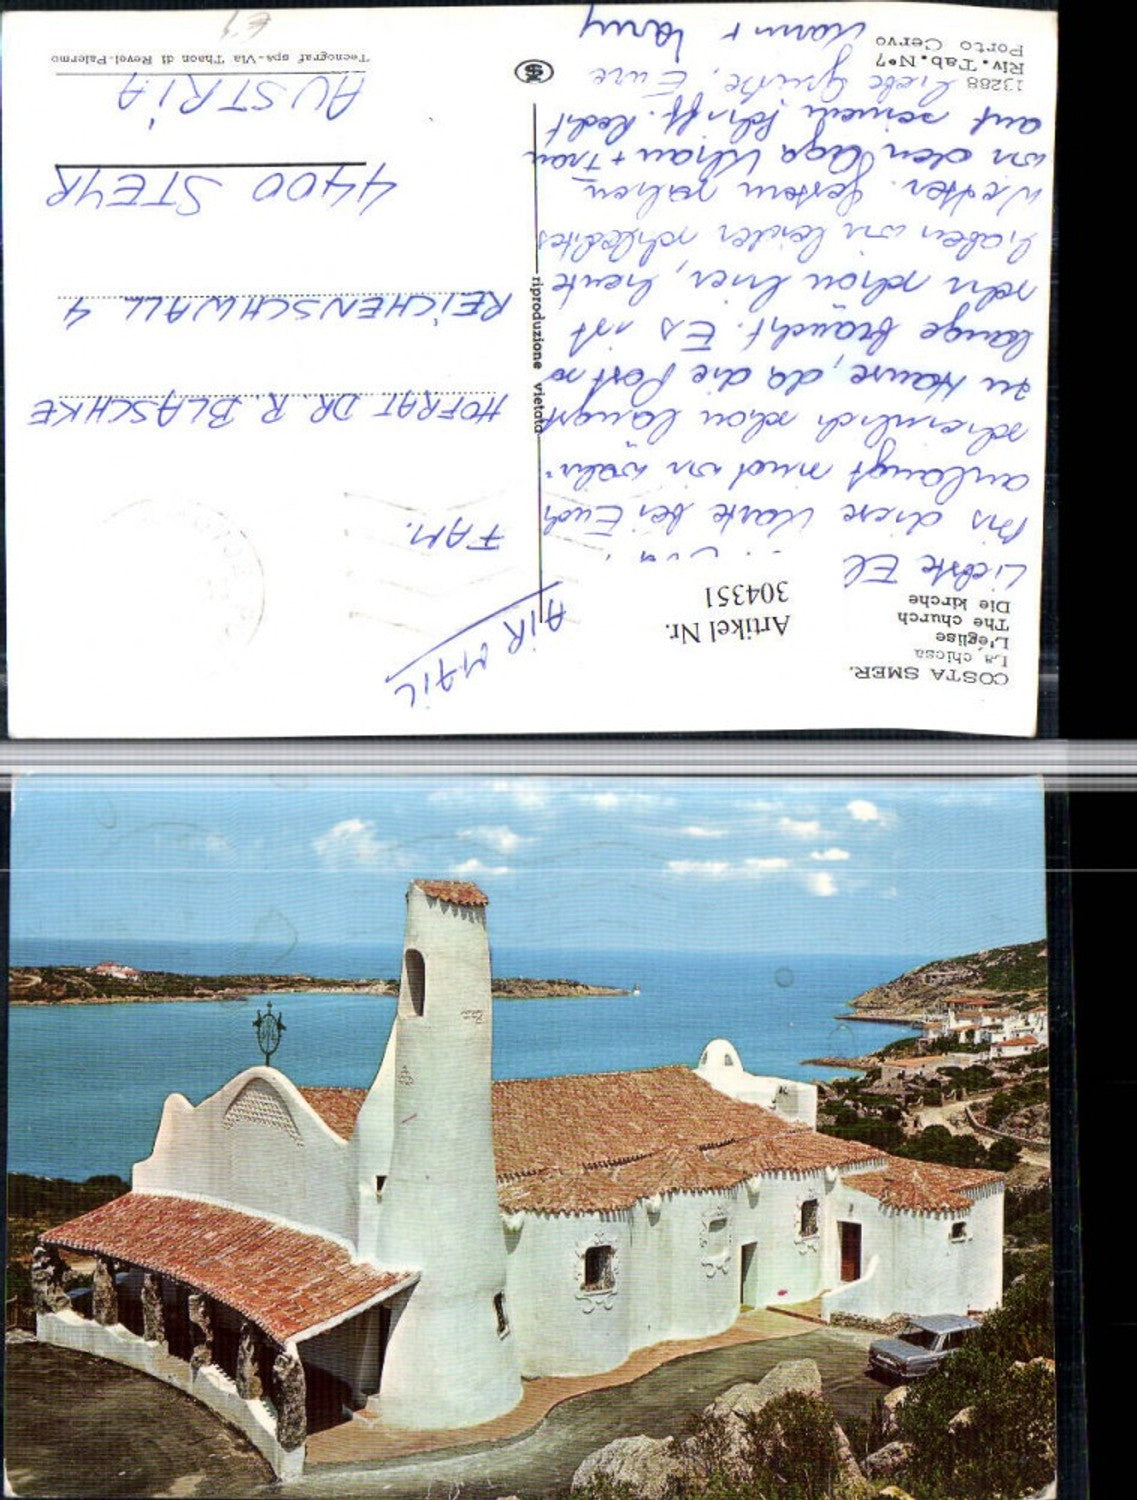 COSTA SMER.
La chiesa
L'église
The church
Die kirche
Artikel Nr.
304351
AIR MAIL
Bis diese Karte bei Euch
anlangt sind wir wahr-
scheinlich schon längst
zu Hause, da die Post so
lange braucht. Es ist
sehr schön hier, heute
haben wir leider schlechtes
Wetter. Gestern sahen
wir den Aga Khan + Frau
auf seinem Schiff. Recht
liebe Grüße, Eure
13288
Riv. Tab. N°7
Porto Cervo
riproduzione vietata
FAM.
HOFRAT DR. R. BLASCHKE
REICHENSCHWALL 4
4400 STEYR
AUSTRIA
Tecnograf spa-Via Thaon di Revel-Palermo